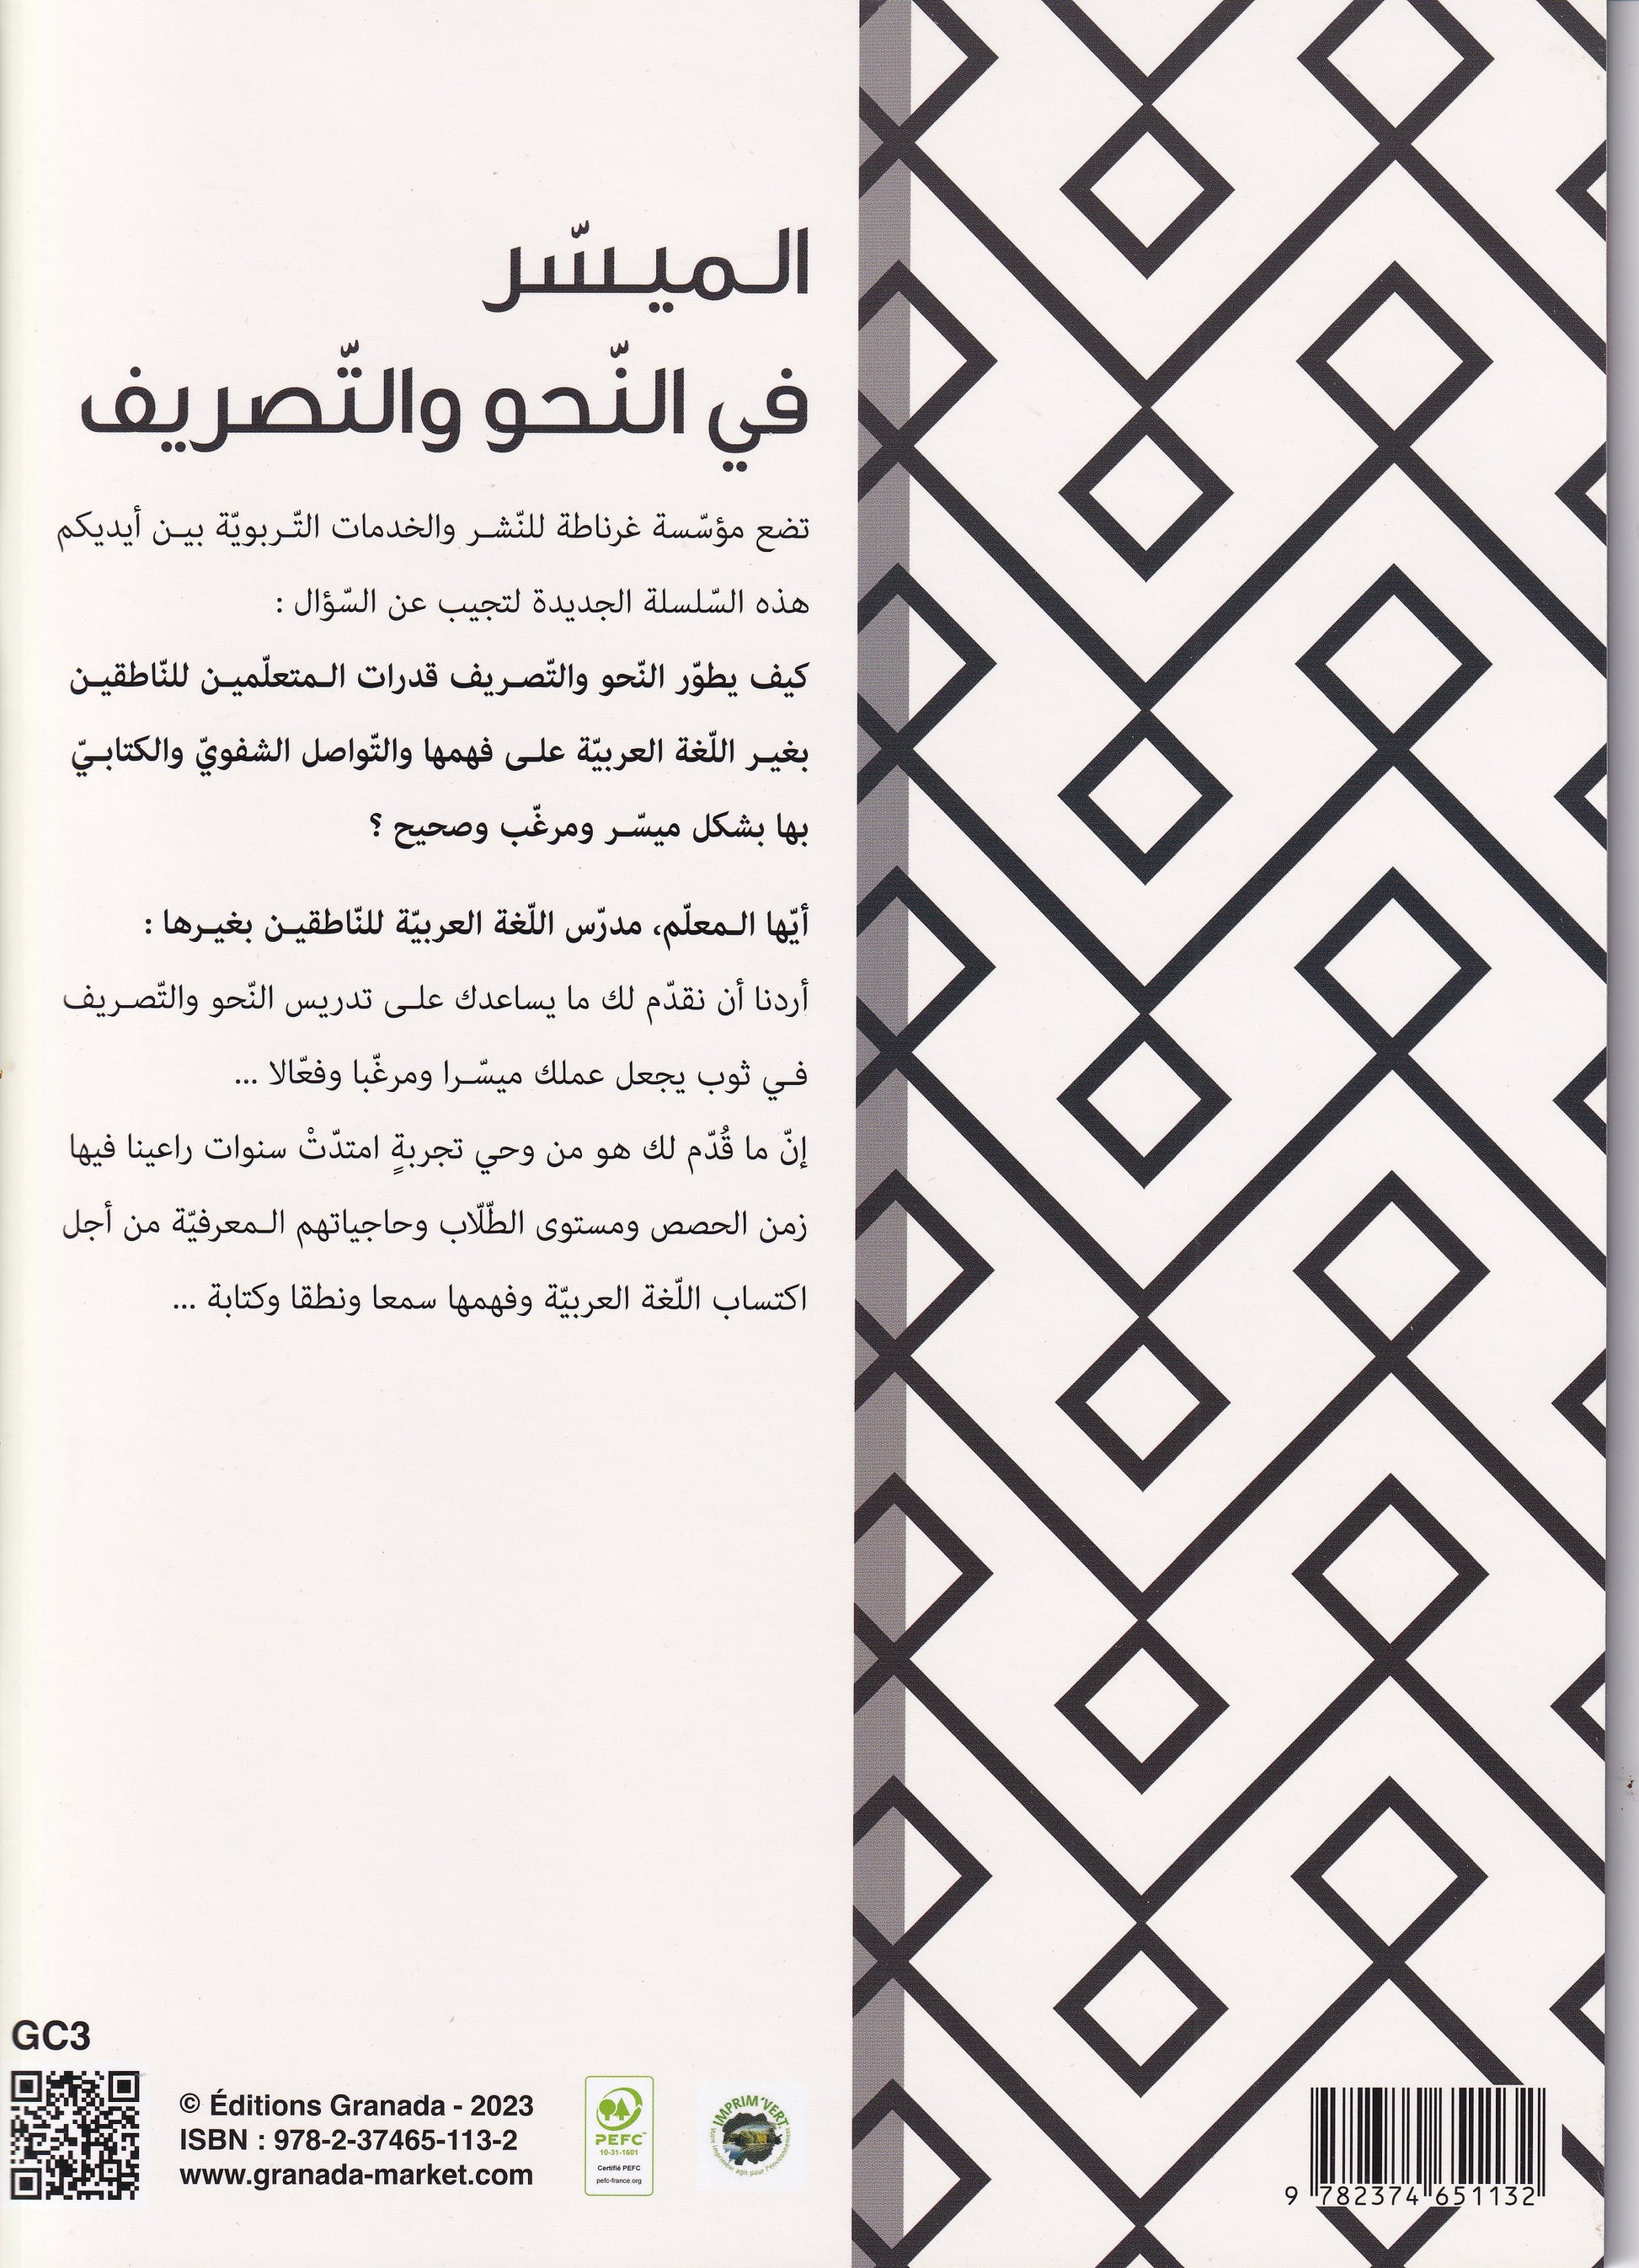 الـميـسّر
في النّحو والتّصريف
تضع مؤسّسة غرناطة للنّشـر والخدمات التّـربويّة بيـن أيديكم
هذه السّلسلة الجديدة لتجيب عن السّؤال :
كيف يطوّر النّحو والتّصـريف قدرات الـمتعلّميـن للنّاطقيـن
بغيـر اللّغة العربيّة علـى فهمها والتّواصل الشفويّ والكتابـيّ
بها بشكل ميسّـر ومرغّب وصحيح ؟
أيّها الـمعلّم، مدرّس اللّغة العربيّة للنّاطقيـن بغيـرها :
أردنا أن نقدّم لك ما يساعدك علـى تدريس النّحو والتّصـريف
فـي ثوب يجعل عملك ميسّـرا ومرغّبا وفعّالا ...
إنّ ما قُدّم لك هو من وحي تجربةٍ امتدّتْ سنوات راعينا فيها
زمن الحصص ومستوى الطّلّاب وحاجياتهم الـمعرفيّة من أجل
اكتساب اللّغة العربيّة وفهمها سمعا ونطقا وكتابة ...
GC3
© Éditions Granada - 2023
ISBN : 978-2-37465-113-2
www.granada-market.com
PEFC™
10-31-1601
Certifié PEFC
pefc-france.org
IMPRIM'VERT
Votre imprimeur agit pour l'environnement
9 782374 651132